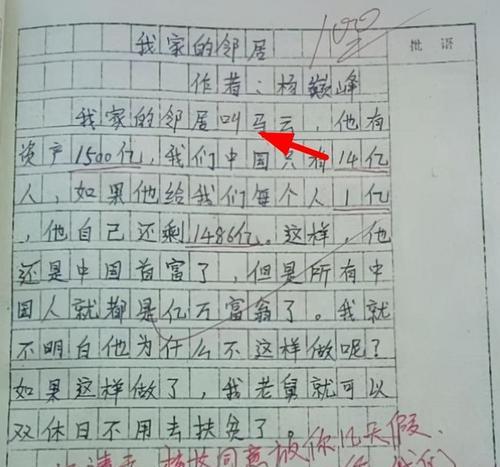 100
我家的邻居
批语
作者:杨巅峰
我家的邻居叫马云,他有
资产1500亿,我们中国只有14亿
人,如果他给我们每个人1亿
,他自己还剩1486亿。这样,他
还是中国首富了,但是所有中
国人就都是亿万富翁了。我就
不明白他为什么不这样做呢?
如果这样做了,我老舅就可以
双休日不用去扶贫了。
同意放你几天假.